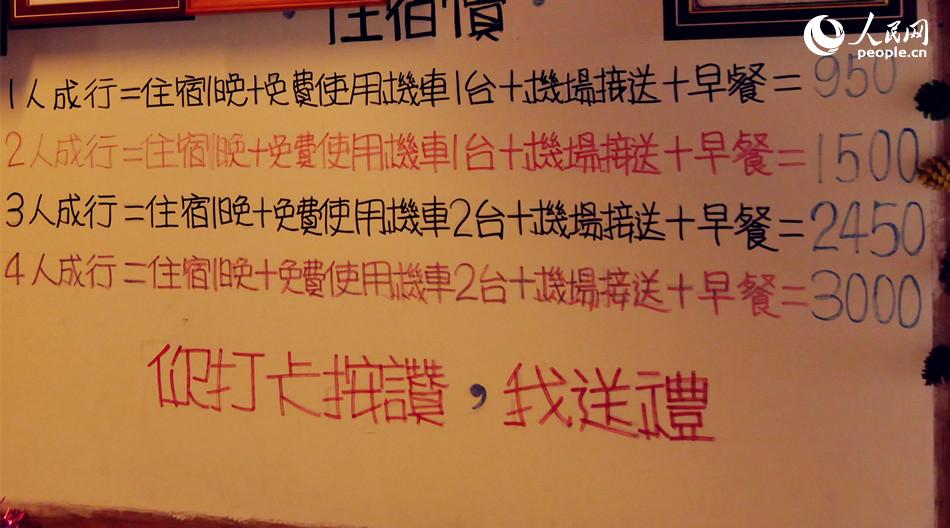 人民网
people.cn
住宿價
1人成行=住宿1晚+免費使用機車1台+機場接送+早餐=950
2人成行=住宿1晚+免費使用機車1台+機場接送+早餐=1500
3人成行=住宿1晚+免費使用機車2台+機場接送+早餐=2450
4人成行=住宿1晚+免費使用機車2台+機場接送+早餐=3000
你打卡按讚，我送禮